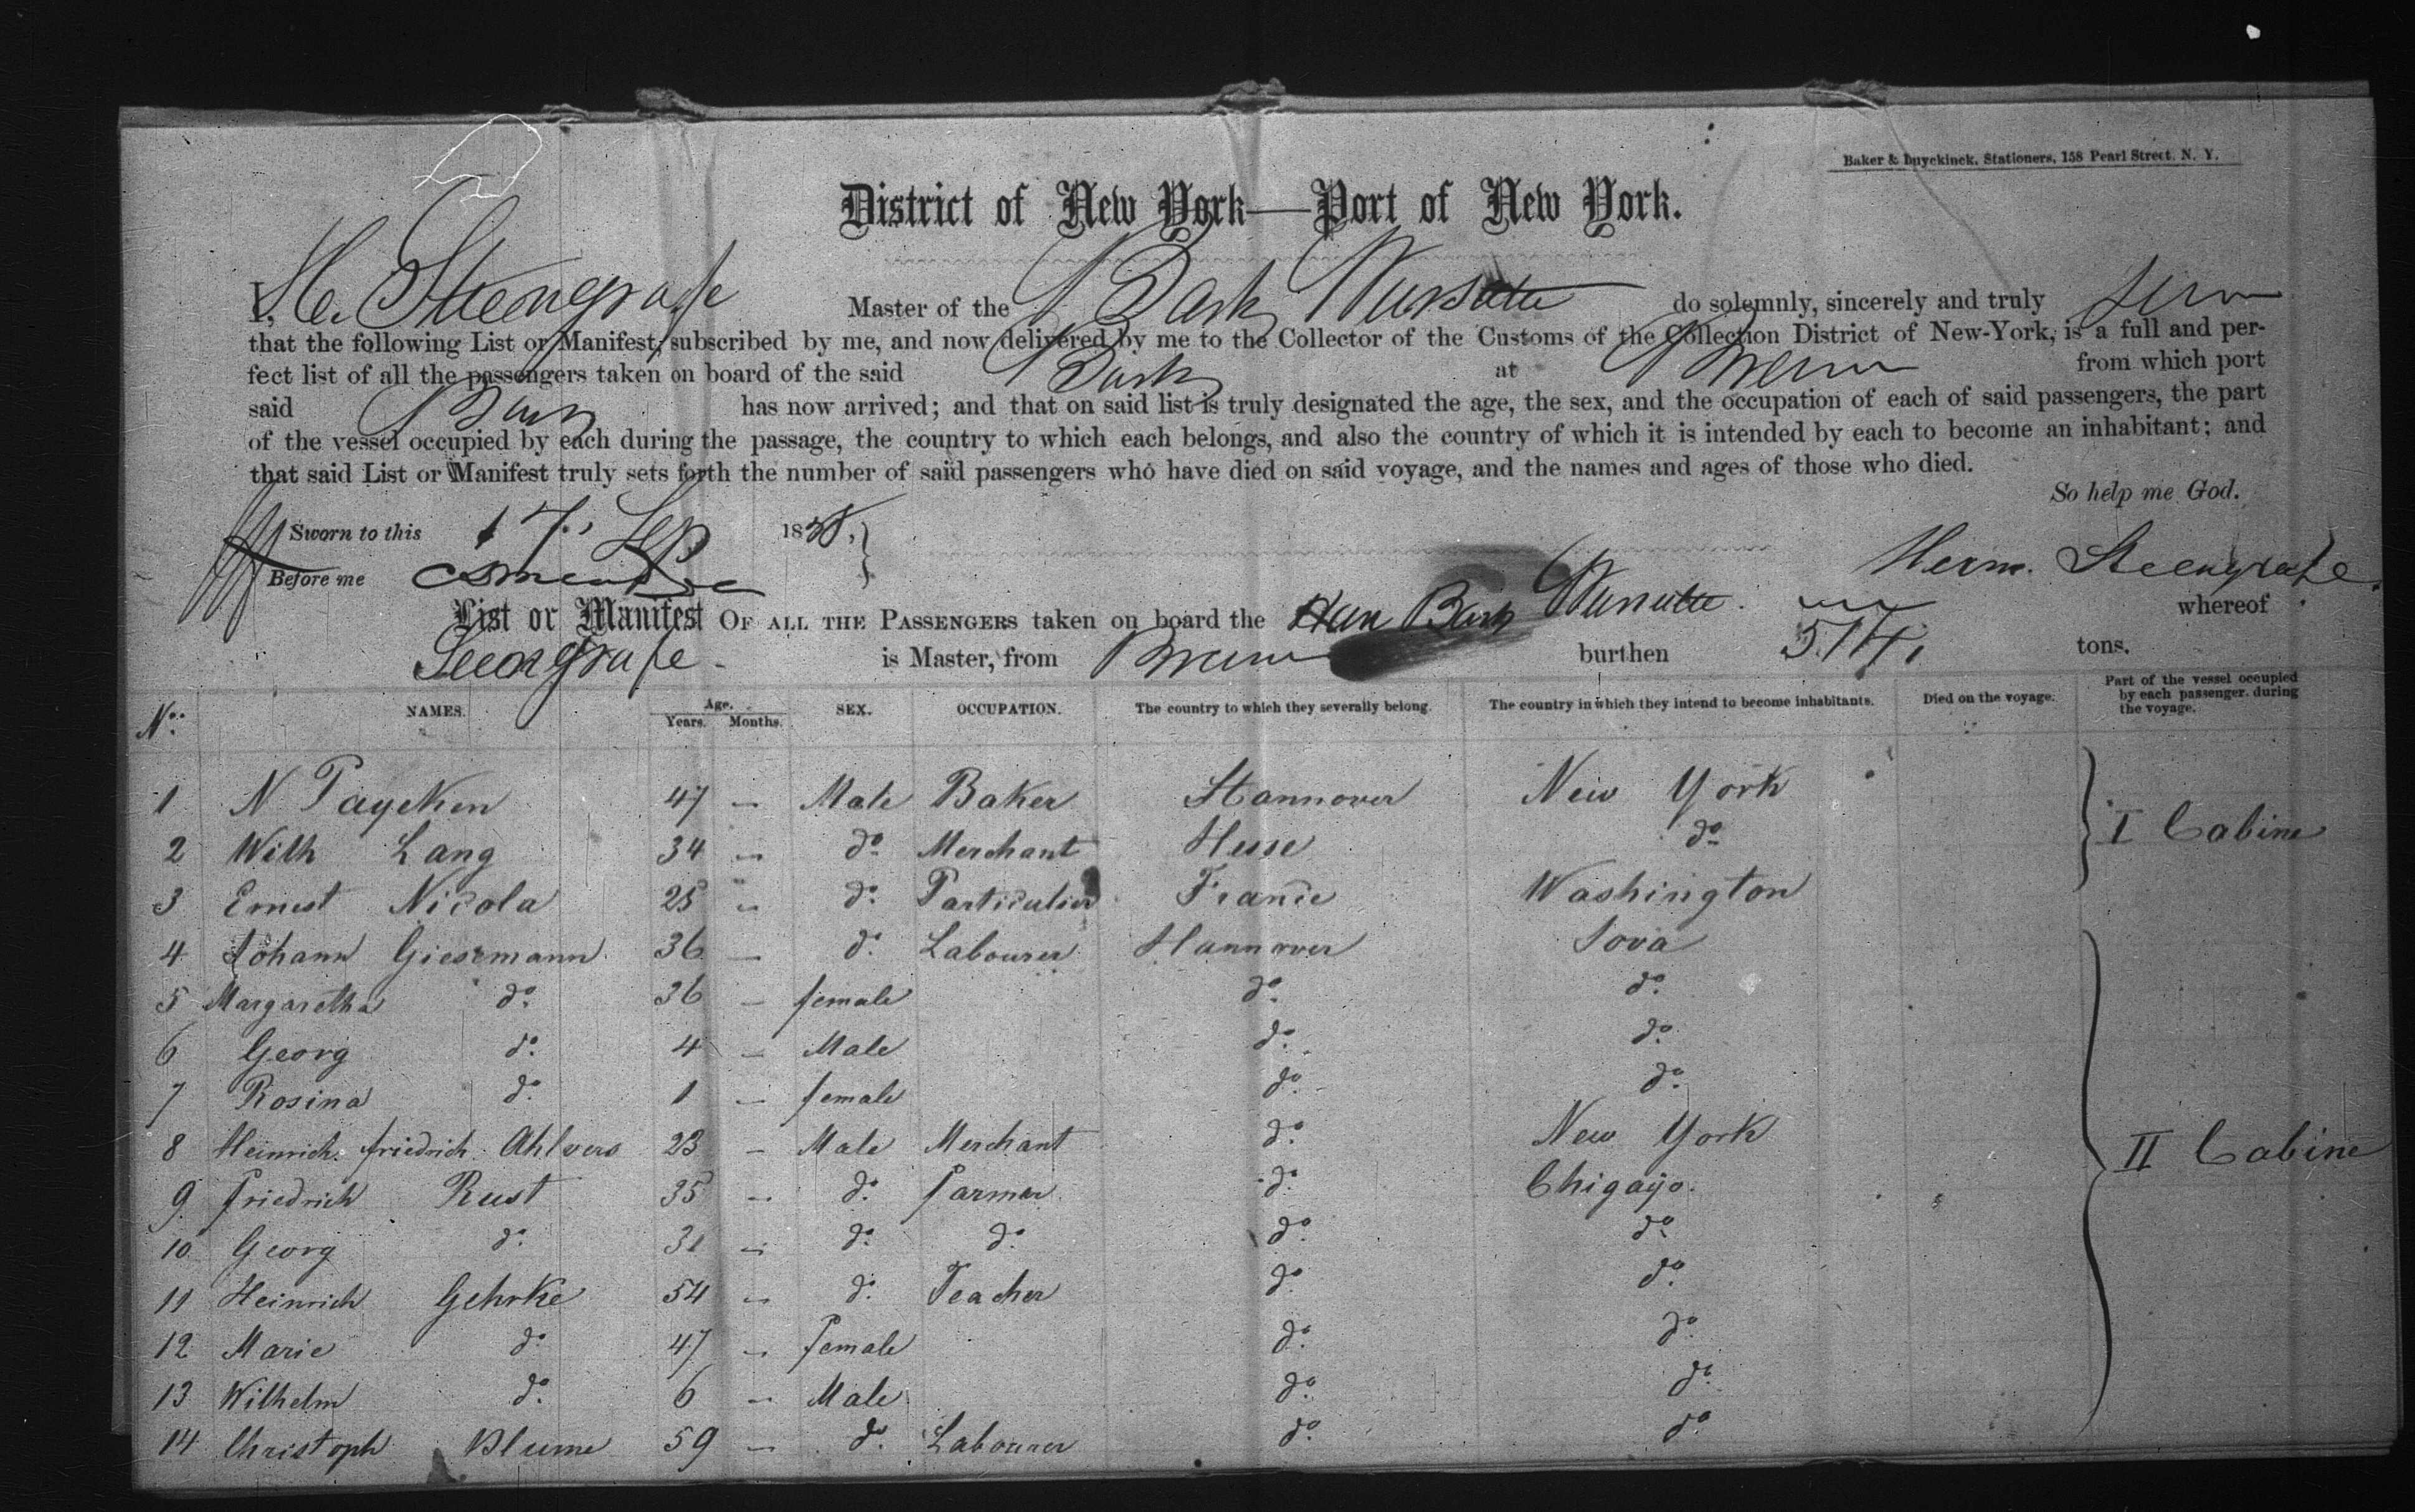 Baker & Duyckinck, Stationers, 158 Pearl Street, N. Y.
District of New York—Port of New York.
I, H. Steengrafe Master of the Bark do solemnly, sincerely and truly
that the following List or Manifest, subscribed by me, and now delivered by me to the Collector of the Customs of the Collection District of New-York, is a full and per-
fect list of all the passengers taken on board of the said Bark at Bremen from which port
said Bark has now arrived; and that on said list is truly designated the age, the sex, and the occupation of each of said passengers, the part
of the vessel occupied by each during the passage, the country to which each belongs, and also the country of which it is intended by each to become an inhabitant; and
that said List or Manifest truly sets forth the number of said passengers who have died on said voyage, and the names and ages of those who died.
So help me God.
Sworn to this 17. Sep 1858.
Before me Herm. Steengrafe.
List or Manifest OF ALL THE PASSENGERS taken on board the Han Bark whereof
Steengrafe is Master, from Bremen burthen 514. tons.
No: NAMES. Age. Years. Months. SEX. OCCUPATION. The country to which they severally belong. The country in which they intend to become inhabitants. Died on the voyage. Part of the vessel occupied by each passenger during the voyage.
1 N Paycken 47 — Male Baker Hannover New York
2 Wilh Lang 34 — do. Merchant Hesse do. I Cabine
3 Ernest Nicola 25 — do. Particulier France Washington
4 Johann Giesemann 36 — do. Labourer Hannover Iova
5 Margaretha do. 36 — female do. do.
6 Georg do. 4 — Male do. do.
7 Rosina do. 1 — female do. do.
8 Heinrich friedrich Ahlvers 23 — Male Merchant do. New York II Cabine
9. friedrich Rust 35 — do. farmer do. Chigago.
10 Georg do. 31 — do. do. do. do.
11 Heinrich Gehrke 54 — do. Teacher do. do.
12 Marie do. 47 — female do. do.
13 Wilhelm do. 6 — Male do. do.
14 Christoph Blume 59 — do. Labourer do. do.